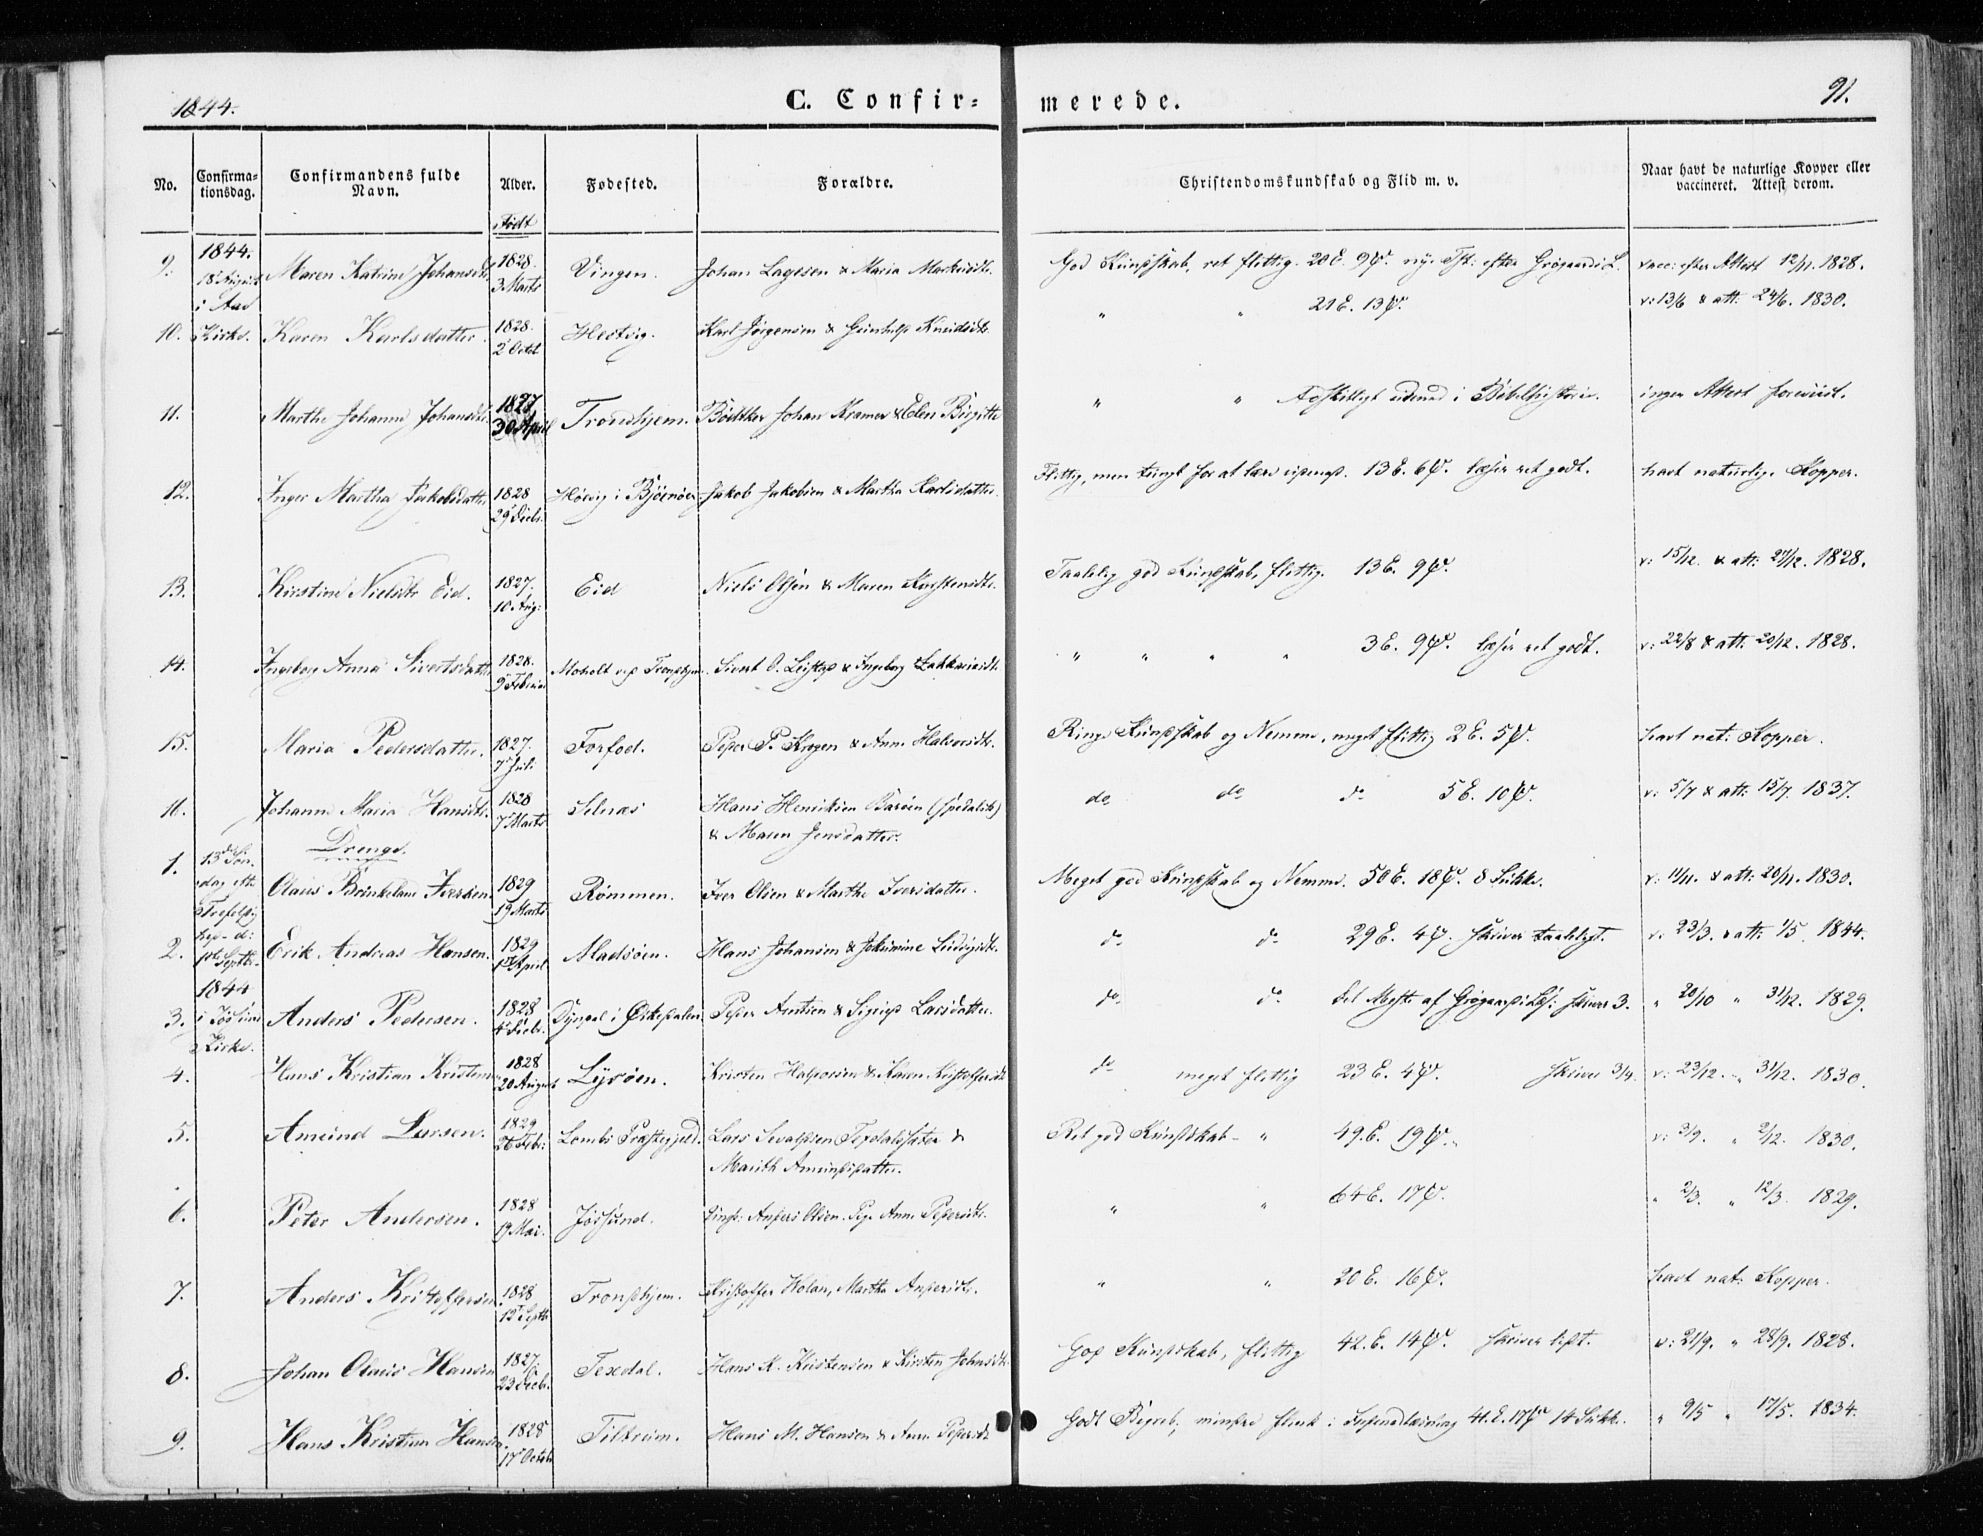 1844.
C. Confirmerede.
91.
No.
Confirmationsdag.
Confirmandens fulde Navn.
Alder.
Fødested.
Forældre.
Christendomskundskab og Flid m. v.
Naar havt de naturlige Kopper eller vaccineret. Attest derom.
Født
9. 1844. 18 August i Aae Kirke. Maren Katrine Johansdtr 1828. 3 Marts Vingen. Johan Lagesen & Maria God Kundskab, ret flittig. 20 E. 9 P. ny Tst: efter Grøgaards L. vacc: efter Attest 12/11. 1828.
10. Karen Karlsdatter. 1828. 2 Octbr Hestvig. Karl Jørgensen & " " 21 E. 13 P. v: 13/6 & att: 24/6. 1830.
11. Marthe Johanne Johansdtr. 1827 30 April Trondhjem. Bødtker Johan Kramer & Elen Birgitte " " Adskilligt udenad i Bibelhistorie. ingen Attest foreviist.
12. Inger Martha Jakobsdatter 1828 29 Decbr. i Bjørnør Jakob Jakobsen & Martha Karlsdatter. Flittig, men tungt for at lære udenad. 13 E. 6 P. læser ret godt. havt naturlige Kopper.
13. Kirstine Nielsdtr Eid. 1827. 10 Aug: Eid Niels Olsen & Maren Taalelig god Kundskab, flittig. 13 E. 9 P. v: 15/12. & att: 27/12. 1828.
14. Ingeborg Anna Sivertsdatter 1828. 9 Februar Moholt ved Trondhjem. Sivert O. & Ingeborg Zakkariasdtr. " " " " 3 E. 9 P. læser ret godt. v: 22/8 & att: 20/12. 1828.
15. Maria Pedersdatter. 1827. 7 Juli Forfod. Peder P. Krogen & Anne Halvorsdtr. Ringe Kundskab og Nemme, meget flittig 2 E. 5 P. havt nat: Kopper.
16. Johanne Maria Hansdtr. 1828 7 Marts Selnæs Hans Henriksen Barøen (Spedalsk) & Maren Jensdatter. do do do 5 E. 10 P. v: 5/7 & att: 15/7. 1837.
Drenge.
1. 13de Søndag eft. Trefoldighed d: 1ste Septbr. 1844 i Jøssund Kirke. Olaus Brinkelane Iversen 1829 19 Marts Rømmen. Iver Olsen & Marthe Iversdatter. Meget god Kundskab og Nemme. 50 E. 18 P. 8 Stykk. v: 11/11. & att: 20/11. 1830.
2. Erik Andreas Hansen. 1829 April Madsøen. Hans Johansen & do do 29 E. 4 P. skriver taaleligt. v: 23/3. & att: 1/5. 1844.
3. Anders Pedersen. 1828 4 Decbr. i Ørkedalen Peder Arntsen & Sigrid Larsdatter. do do det Meste af skriver 3. " 20/10 " 31/12. 1829.
4. Hans Kristian Kristensen 1828 20 August Lysøen. Kristen Halvorsen & Karen Kristoffersdtr do meget flittig 23 E. 4 P. skriver 3/4. v: 23/12. " 31/12. 1830.
5. Amund Larsen. 1829 26 Feb: Lombs Præstegjeld. Lars & Marith Amundsdatter. Ret god Kundskab " 49. E. 19 P. v: 2/9. " 2/12. 1830.
6. Peter Andersen. 1828 19 Mai. Jøssund. Ungk: Anders Olsen. Pige Anne Pedersdtr. " " 64 E. 17 P. " 2/3. " 12/3. 1829.
7. Anders Kristoffersen 1828 12 Septbr Trondhjem. Kristoffer Wolan, Martha Andersdtr. " " 20 E. 16 P. havt nat: Kopper.
8. Johan Olaus Hansen 1827 23 Decbr. Texdal. Hans K. Kristensen & Kirsten Johnsdtr. God Kundskab, flittig 42. E. 14 P. skriver lidt. v: 21/9. " 28/9. 1828.
9. Hans Kristian Hansen 1828 17 Octobr Tiltrem. Hans M. Hansen & Anne Pedersdtr Godt Begreb, mindre flink i Indenadlæsning 41. E. 17 P. 14 Stykk. " 9/5 " 17/5. 1834.